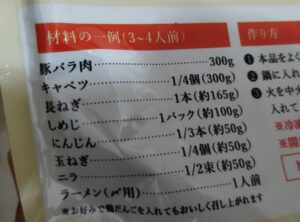 材料の一例(3~4人前)
豚バラ肉 300g
キャベツ 1/4個(300g)
長ねぎ 1本(約165g)
しめじ 1パック(約100g)
にんじん 1/3本(約50g)
玉ねぎ 1/4個(約50g)
ニラ 1/2束(約50g)
ラーメン(〆用) 1人前
※お好みで鶏だんごを入れてもおいしく召し上がれます
作り方
❶ 本品をよく
❷ 鍋に入れ
❸ 火を中央
入れて
※冷凍
※開